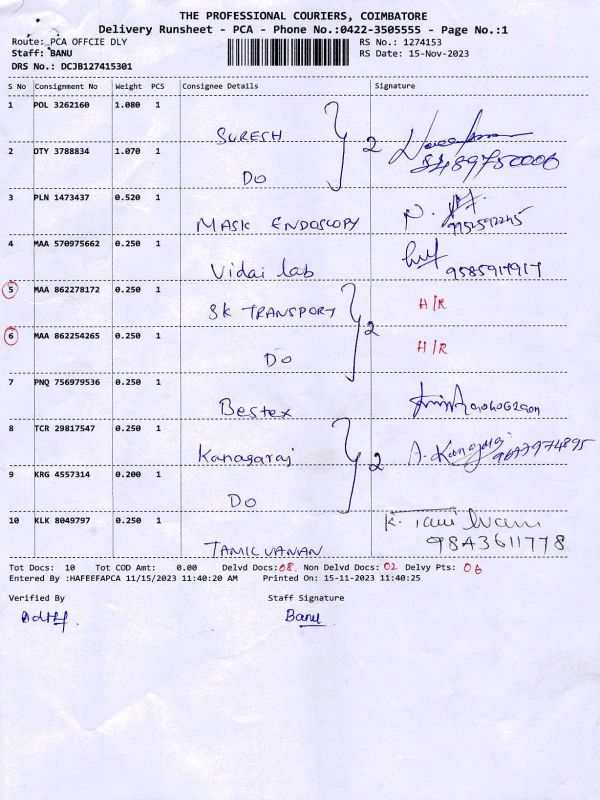 THE PROFESSIONAL COURIERS, COIMBATORE
Delivery Runsheet - PCA - Phone No.:0422-3505555 - Page No.:1
Route: PCA OFFCIE DLY RS No.: 1274153
Staff: BANU RS Date: 15-Nov-2023
DRS No.: DCJB127415301
S No Consignment No Weight PCS Consignee Details Signature
1 POL 3262160 1.080 1
SURESH
2
2 DTY 3788834 1.070 1
DO
3 PLN 1473437 0.520 1
MASK ENDOSCOPY
4 MAA 570975662 0.250 1
Vidai lab 9585917917
5 MAA 862278172 0.250 1
SK TRANSPORT H/R
2
6 MAA 862254265 0.250 1 H/R
DO
7 PNQ 756979536 0.250 1
Bestex
8 TCR 29817547 0.250 1
Kanagaraj A. Kanagaraj
2
9 KRG 4557314 0.200 1
DO
10 KLK 8049797 0.250 1
9843611778
TAMILVANAN
Tot Docs: 10 Tot COD Amt: 0.00 Delvd Docs: 08. Non Delvd Docs: 02 Delvy Pts: 06
Entered By :HAFEEFAPCA 11/15/2023 11:40:20 AM Printed On: 15-11-2023 11:40:25
Verified By Staff Signature
Banu